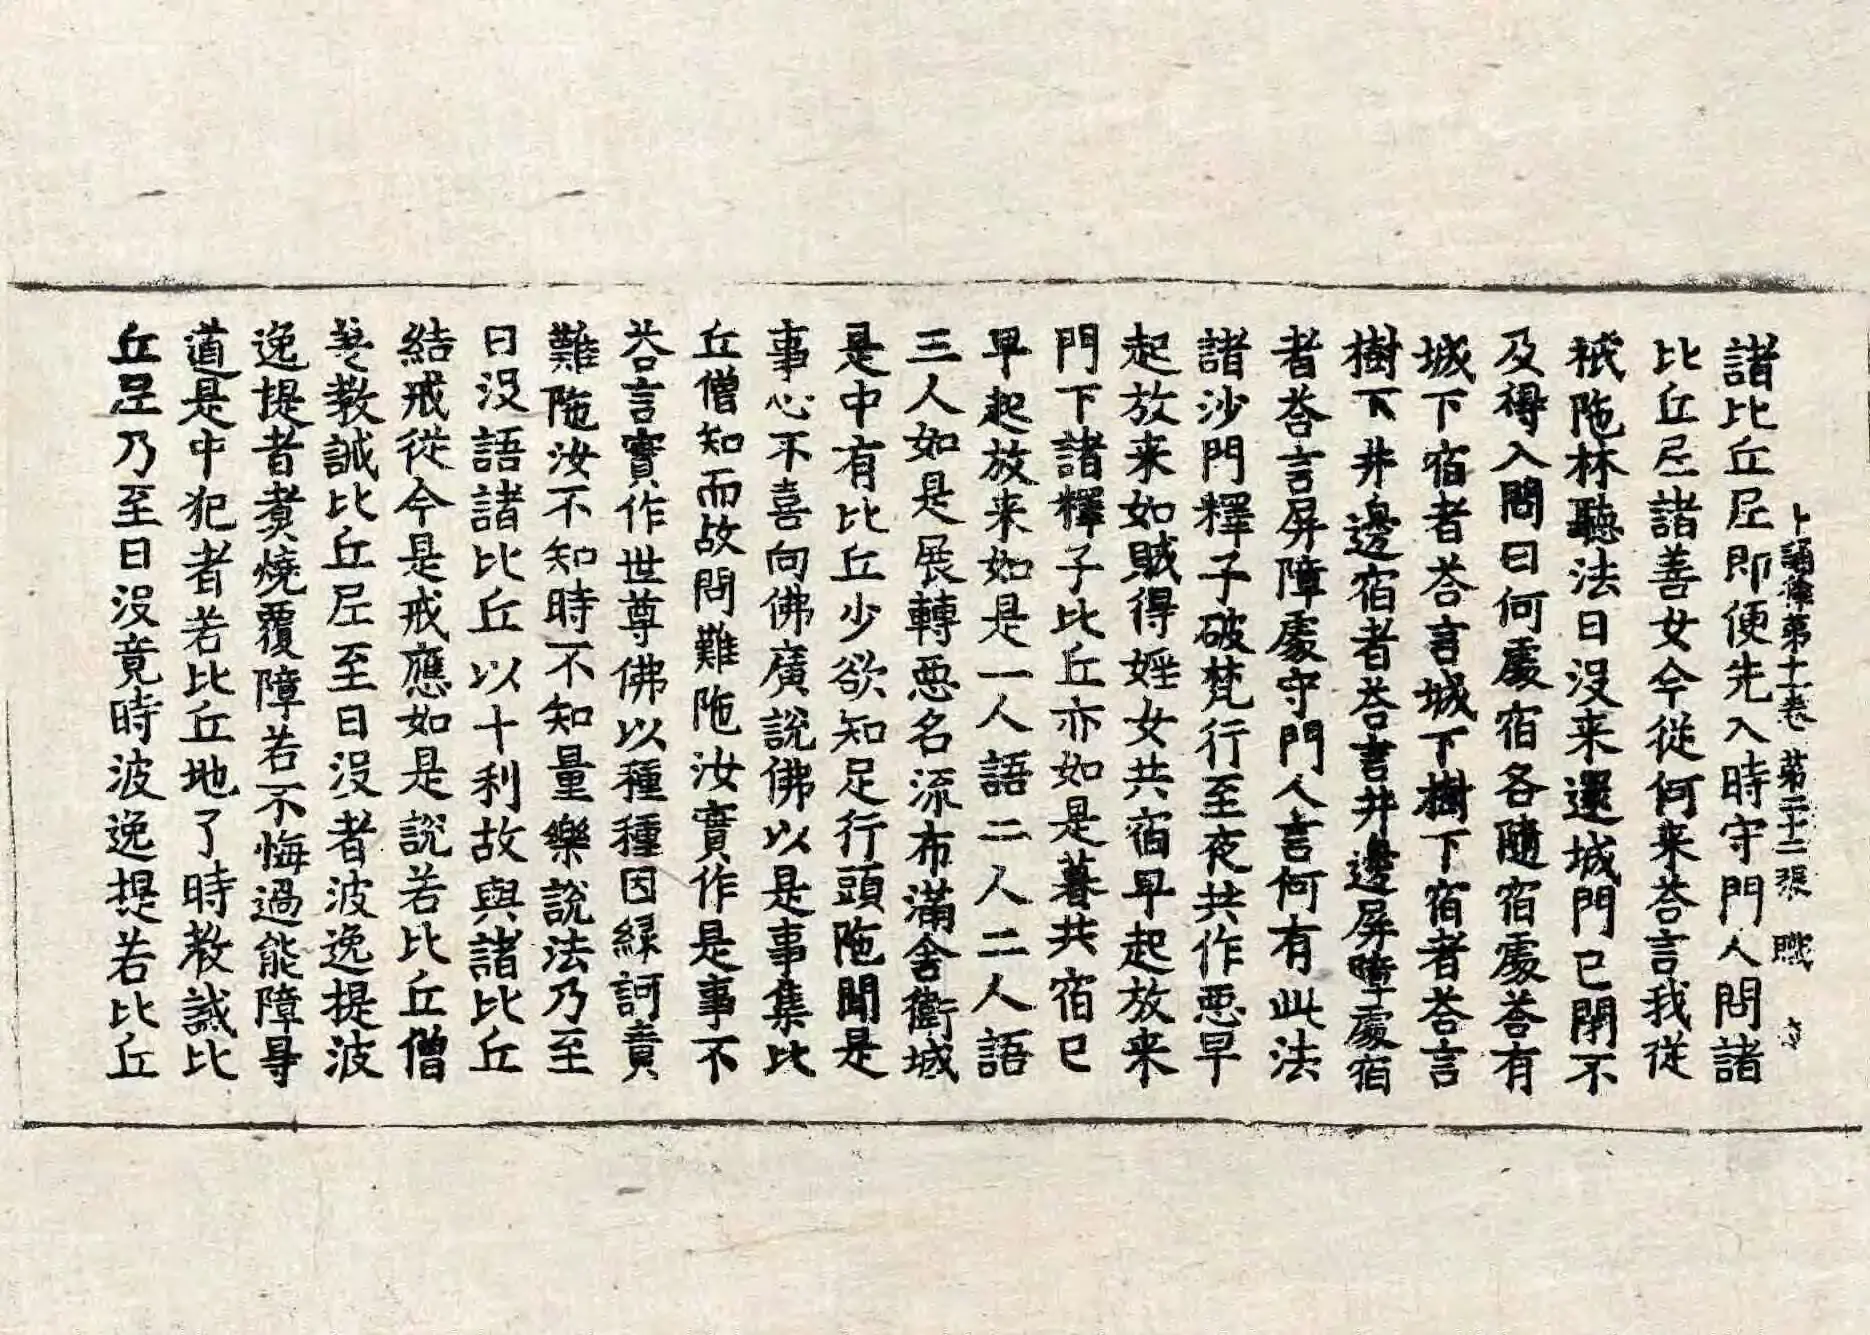 十誦律第十一卷 第二十二張 職
諸比丘尼即便先入時守門人問諸
比丘尼諸善女今從何来荅言我從
祇陁林聽法日没来還城門已閉不
及得入問曰何處宿各隨宿處荅有
城下宿者荅言城下樹下宿者荅言
樹下井邊宿者荅言井邊屏障處宿
者荅言屏障處守門人言何有此法
諸沙門釋子破梵行至夜共作惡早
起放来如賊得婬女共宿早起放来
門下諸釋子比丘亦如是暮共宿已
早起放来如是一人語二人二人語
三人如是展轉惡名流布滿舍衛城
是中有比丘少欲知足行頭陁聞是
事心不喜向佛廣說佛以是事集比
丘僧知而故問難陁汝實作是事不
荅言實作世尊佛以種種因緣訶責
難陁汝不知時不知量樂說法乃至
日没語諸比丘以十利故與諸比丘
結戒從今是戒應如是說若比丘僧
差教誡比丘尼至日没者波逸提波
逸提者煑燒覆障若不悔過能障㝵
道是中犯者若比丘地了時教誡比
丘尼乃至日没竟時波逸提若比丘